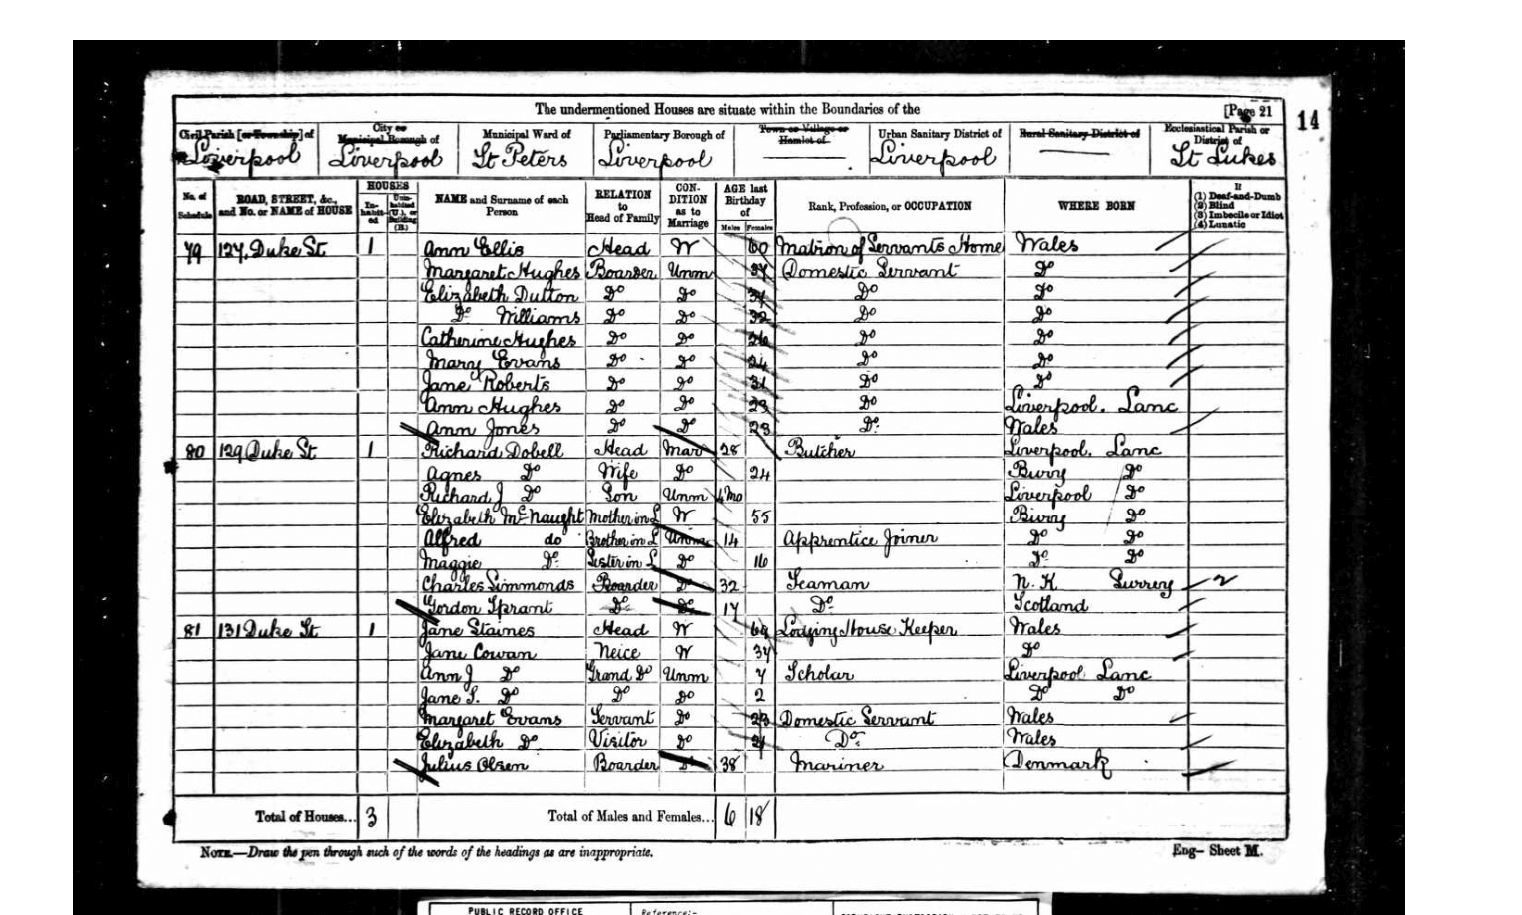 The undermentioned Houses are situate within the Boundaries of the [Page 21
14
Civil Parish [or Township] of City or Municipal Borough of Municipal Ward of Parliamentary Borough of Town or Village or Hamlet of Urban Sanitary District of Rural Sanitary District of Ecclesiastical Parish or District of
Liverpool Liverpool St Peters Liverpool Liverpool St Lukes
No. of Schedule ROAD, STREET, &c., and No. or NAME of HOUSE HOUSES In-habit-ed Unin-habited (U.), or Building (B.) NAME and Surname of each Person RELATION to Head of Family CON-DITION as to Marriage AGE last Birthday of Males Females Rank, Profession, or OCCUPATION WHERE BORN If (1) Deaf-and-Dumb (2) Blind (3) Imbecile or Idiot (4) Lunatic
79 127, Duke St 1 Ann Ellis Head W 60 Matron of Servants Home Wales
Margaret Hughes Boarder Unm Domestic Servant Do
Elizabeth Dutton Do Do Do Do
Do Williams Do Do 32 Do Do
Catherine Hughes Do Do 26 Do Do
Mary Evans Do Do 24 Do Do
Jane Roberts Do Do 31 Do Do
Ann Hughes Do Do 23 Do Liverpool. Lanc
Ann Jones Do Do 23 Do Wales
80 129 Duke St 1 Richard Dobell Head Mar 28 Butcher Liverpool. Lanc
Agnes Do Wife Do 24 Do
Richard J Do Son Unm 4 Mo Liverpool Do
Elizabeth McNaught Mother in L W 55 Do
Alfred do Brother in L Unm 14 Apprentice Joiner Do Do
Maggie Do Sister in L Do 16 Do Do
Charles Simmonds Boarder Do 32 Seaman N. K Surrey
Gordon Sprant Do Do 17 Do Scotland
81 131 Duke St 1 Jane Staines Head W 69 Lodging House Keeper Wales
Jane Cowan Neice W 37 Do
Ann J Do Grand Do Unm 7 Scholar Liverpool Lanc
Jane S. Do Do Do 2 Do Do
Margaret Evans Servant Do 23 Domestic Servant Wales
Elizabeth Do Visitor Do 21 Do Wales
Julius Olsen Boarder Do 38 Mariner Denmark
Total of Houses... 3 Total of Males and Females... 6 18
NOTE.—Draw the pen through such of the words of the headings as are inappropriate. Eng- Sheet M.
PUBLIC RECORD OFFICE Reference:-